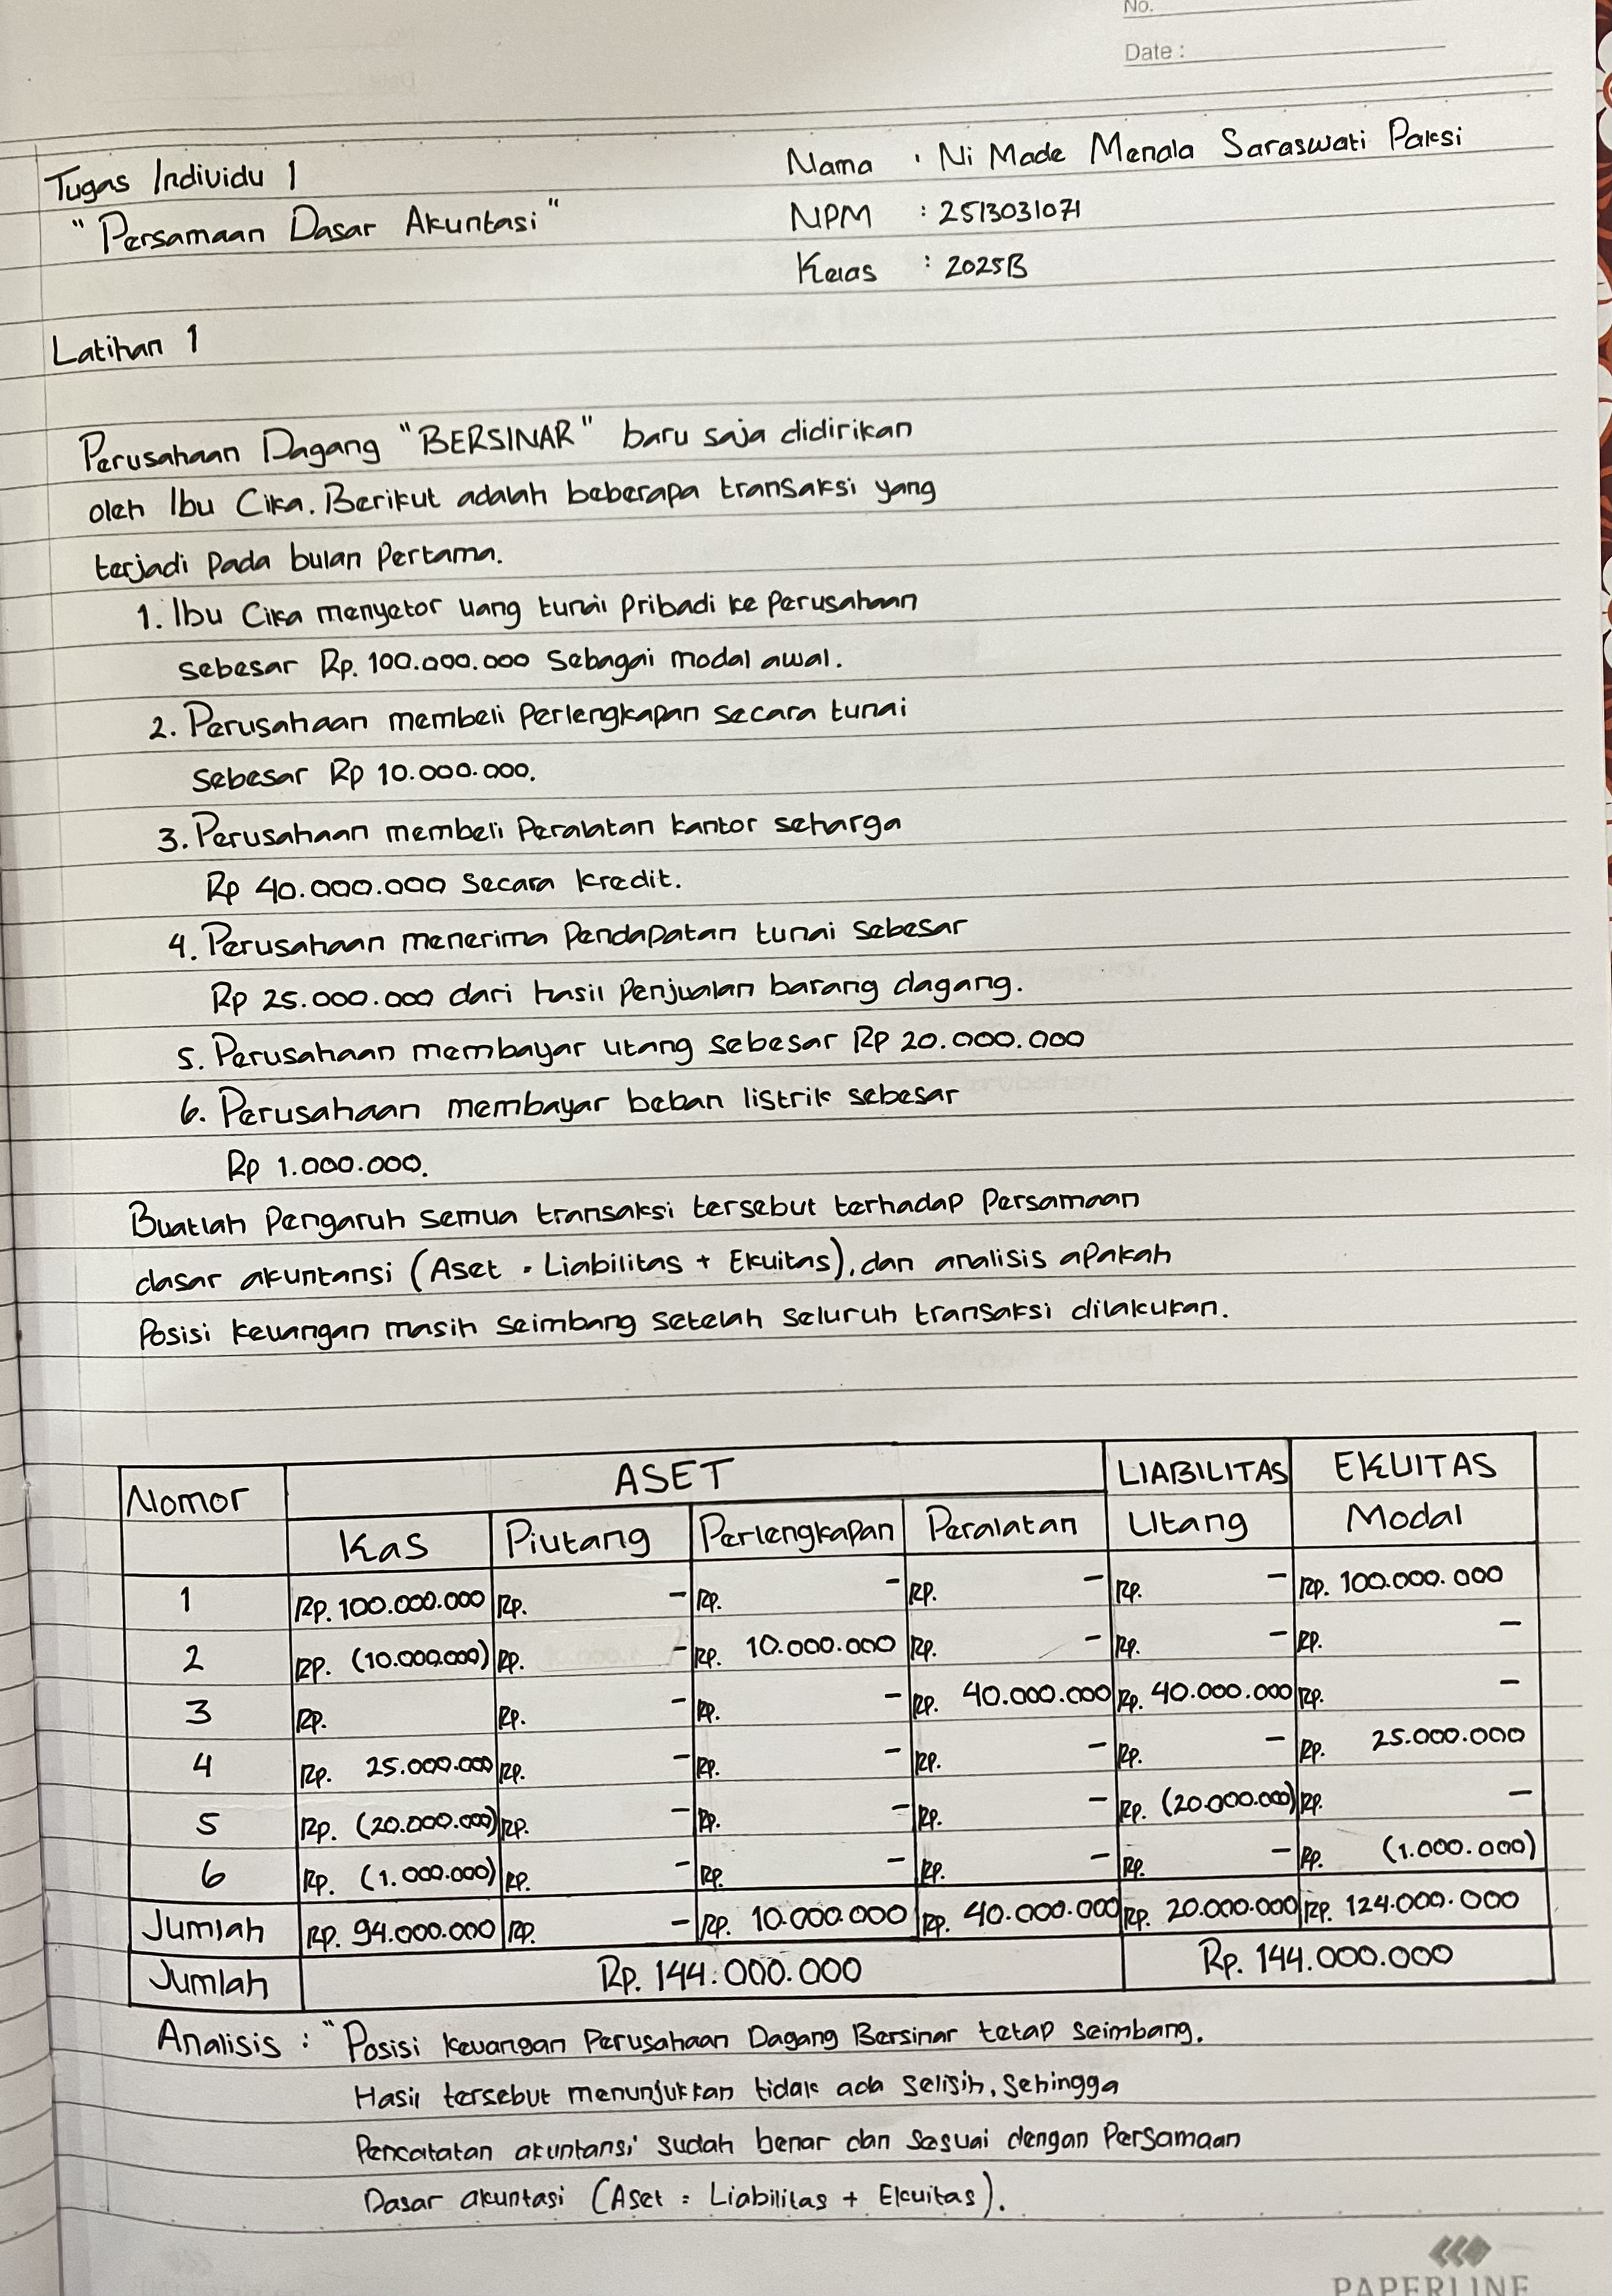 No.
Date :
Tugas Individu 1
"Persamaan Dasar Akuntasi"
Nama : Ni Made Menala Saraswati Paksi
NPM : 2513031071
Kelas : 2025B
Latihan 1
Perusahaan Dagang "BERSINAR" baru saja didirikan
oleh Ibu Cika. Berikut adalah beberapa transaksi yang
terjadi pada bulan pertama.
1. Ibu Cika menyetor uang tunai pribadi ke perusahaan
sebesar Rp. 100.000.000 sebagai modal awal.
2. Perusahaan membeli perlengkapan secara tunai
sebesar Rp 10.000.000.
3. Perusahaan membeli peralatan kantor seharga
Rp 40.000.000 secara kredit.
4. Perusahaan menerima pendapatan tunai sebesar
Rp 25.000.000 dari hasil penjualan barang dagang.
5. Perusahaan membayar utang sebesar Rp 20.000.000
6. Perusahaan membayar beban listrik sebesar
Rp 1.000.000.
Buatlah pengaruh semua transaksi tersebut terhadap persamaan
dasar akuntansi (Aset = Liabilitas + Ekuitas), dan analisis apakah
posisi keuangan masih seimbang setelah seluruh transaksi dilakukan.
Nomor ASET LIABILITAS EKUITAS
Kas Piutang Perlengkapan Peralatan Utang Modal
1 Rp. 100.000.000 Rp. - Rp. - Rp. - Rp. - Rp. 100.000.000
2 Rp. (10.000.000) Rp. - Rp. 10.000.000 Rp. - Rp. - Rp. -
3 Rp. Rp. - Rp. - Rp. 40.000.000 Rp. 40.000.000 Rp. -
4 Rp. 25.000.000 Rp. - Rp. - Rp. - Rp. - Rp. 25.000.000
5 Rp. (20.000.000) Rp. - Rp. - Rp. - Rp. (20.000.000) Rp. -
6 Rp. (1.000.000) Rp. - Rp. - Rp. - Rp. - Rp. (1.000.000)
Jumlah Rp. 94.000.000 Rp. - Rp. 10.000.000 Rp. 40.000.000 Rp. 20.000.000 Rp. 124.000.000
Jumlah Rp. 144.000.000 Rp. 144.000.000
Analisis : "Posisi keuangan Perusahaan Dagang Bersinar tetap seimbang.
Hasil tersebut menunjukkan tidak ada selisih, sehingga
Pencatatan akuntansi sudah benar dan sesuai dengan Persamaan
Dasar akuntasi (Aset = Liabilitas + Ekuitas).
PAPERLINE